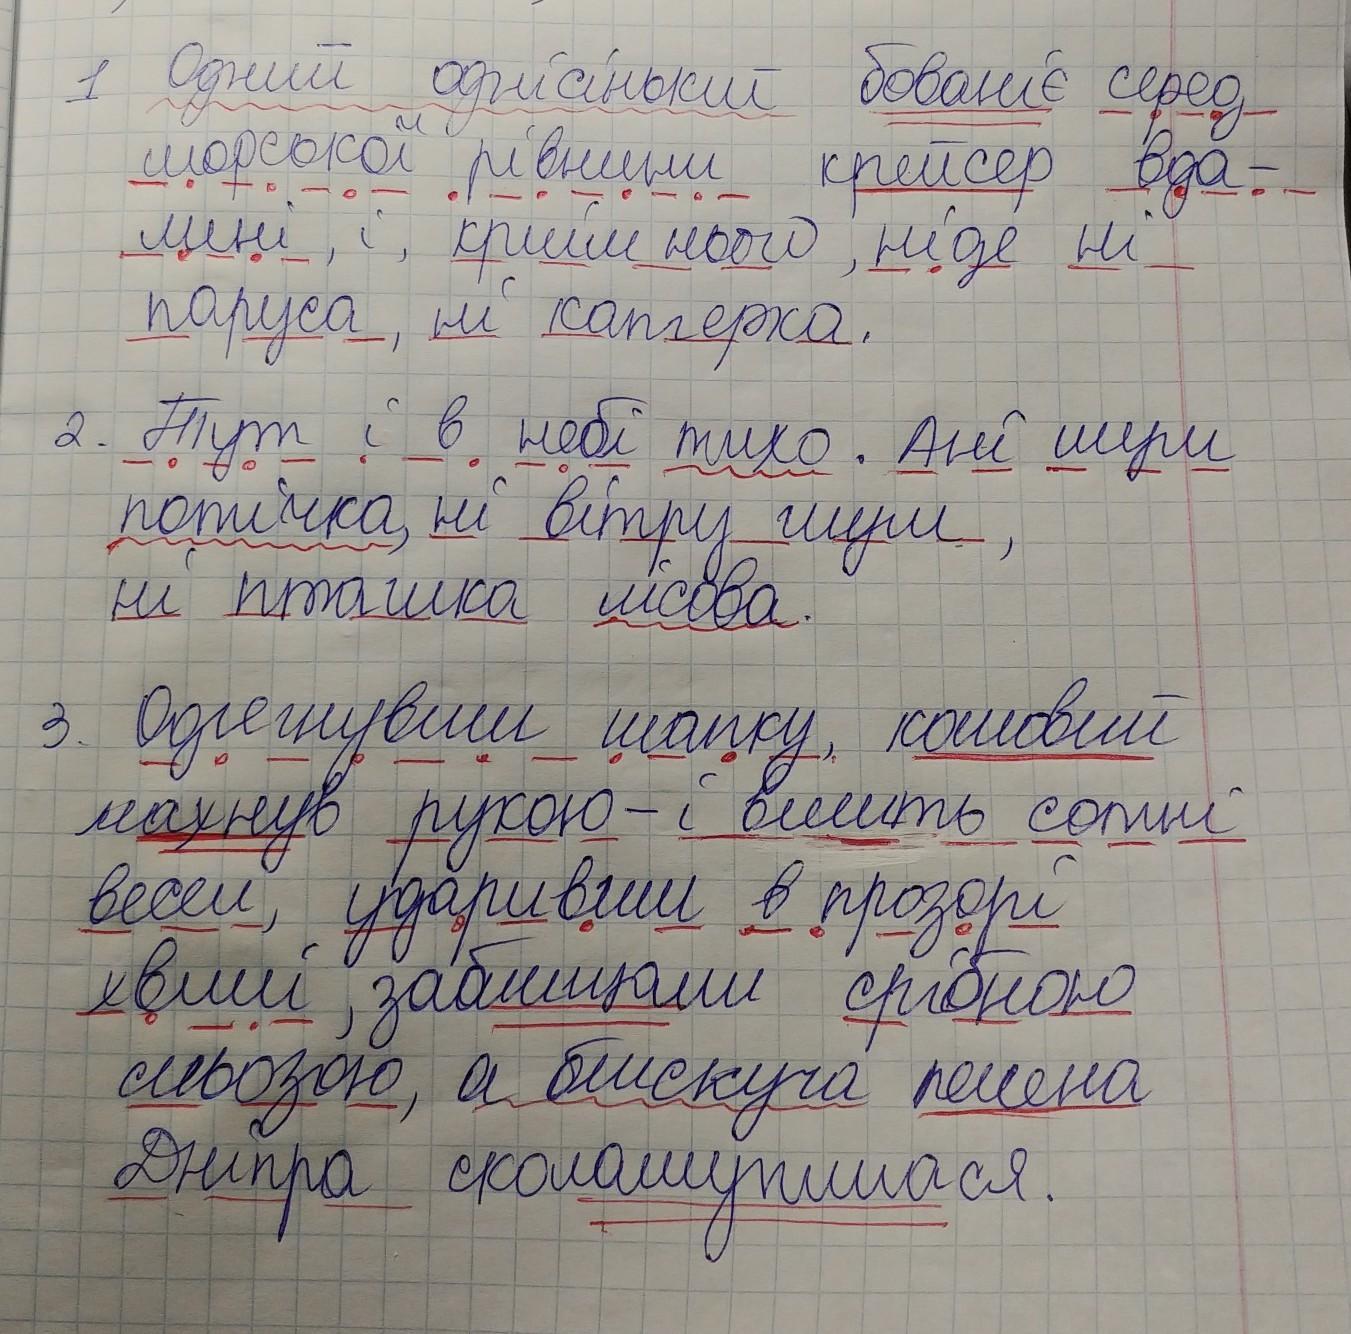 1 Одний однісінький бованіє серед
морської рівнини крейсер вда-
лині, і, крім нього, ніде ні
паруса, ні катерка.
2. Тут і в небі тихо. Ані шури
потічка, ні вітру шуми,
ні пташка лісова.
3. Одягнувши шапку, кошовий
махнув рукою – і вмить сотні
весел, ударивши в прозорі
хвилі, заблищали срібною
сльозою, а блискуча пелена
Дніпра сколамутилася.